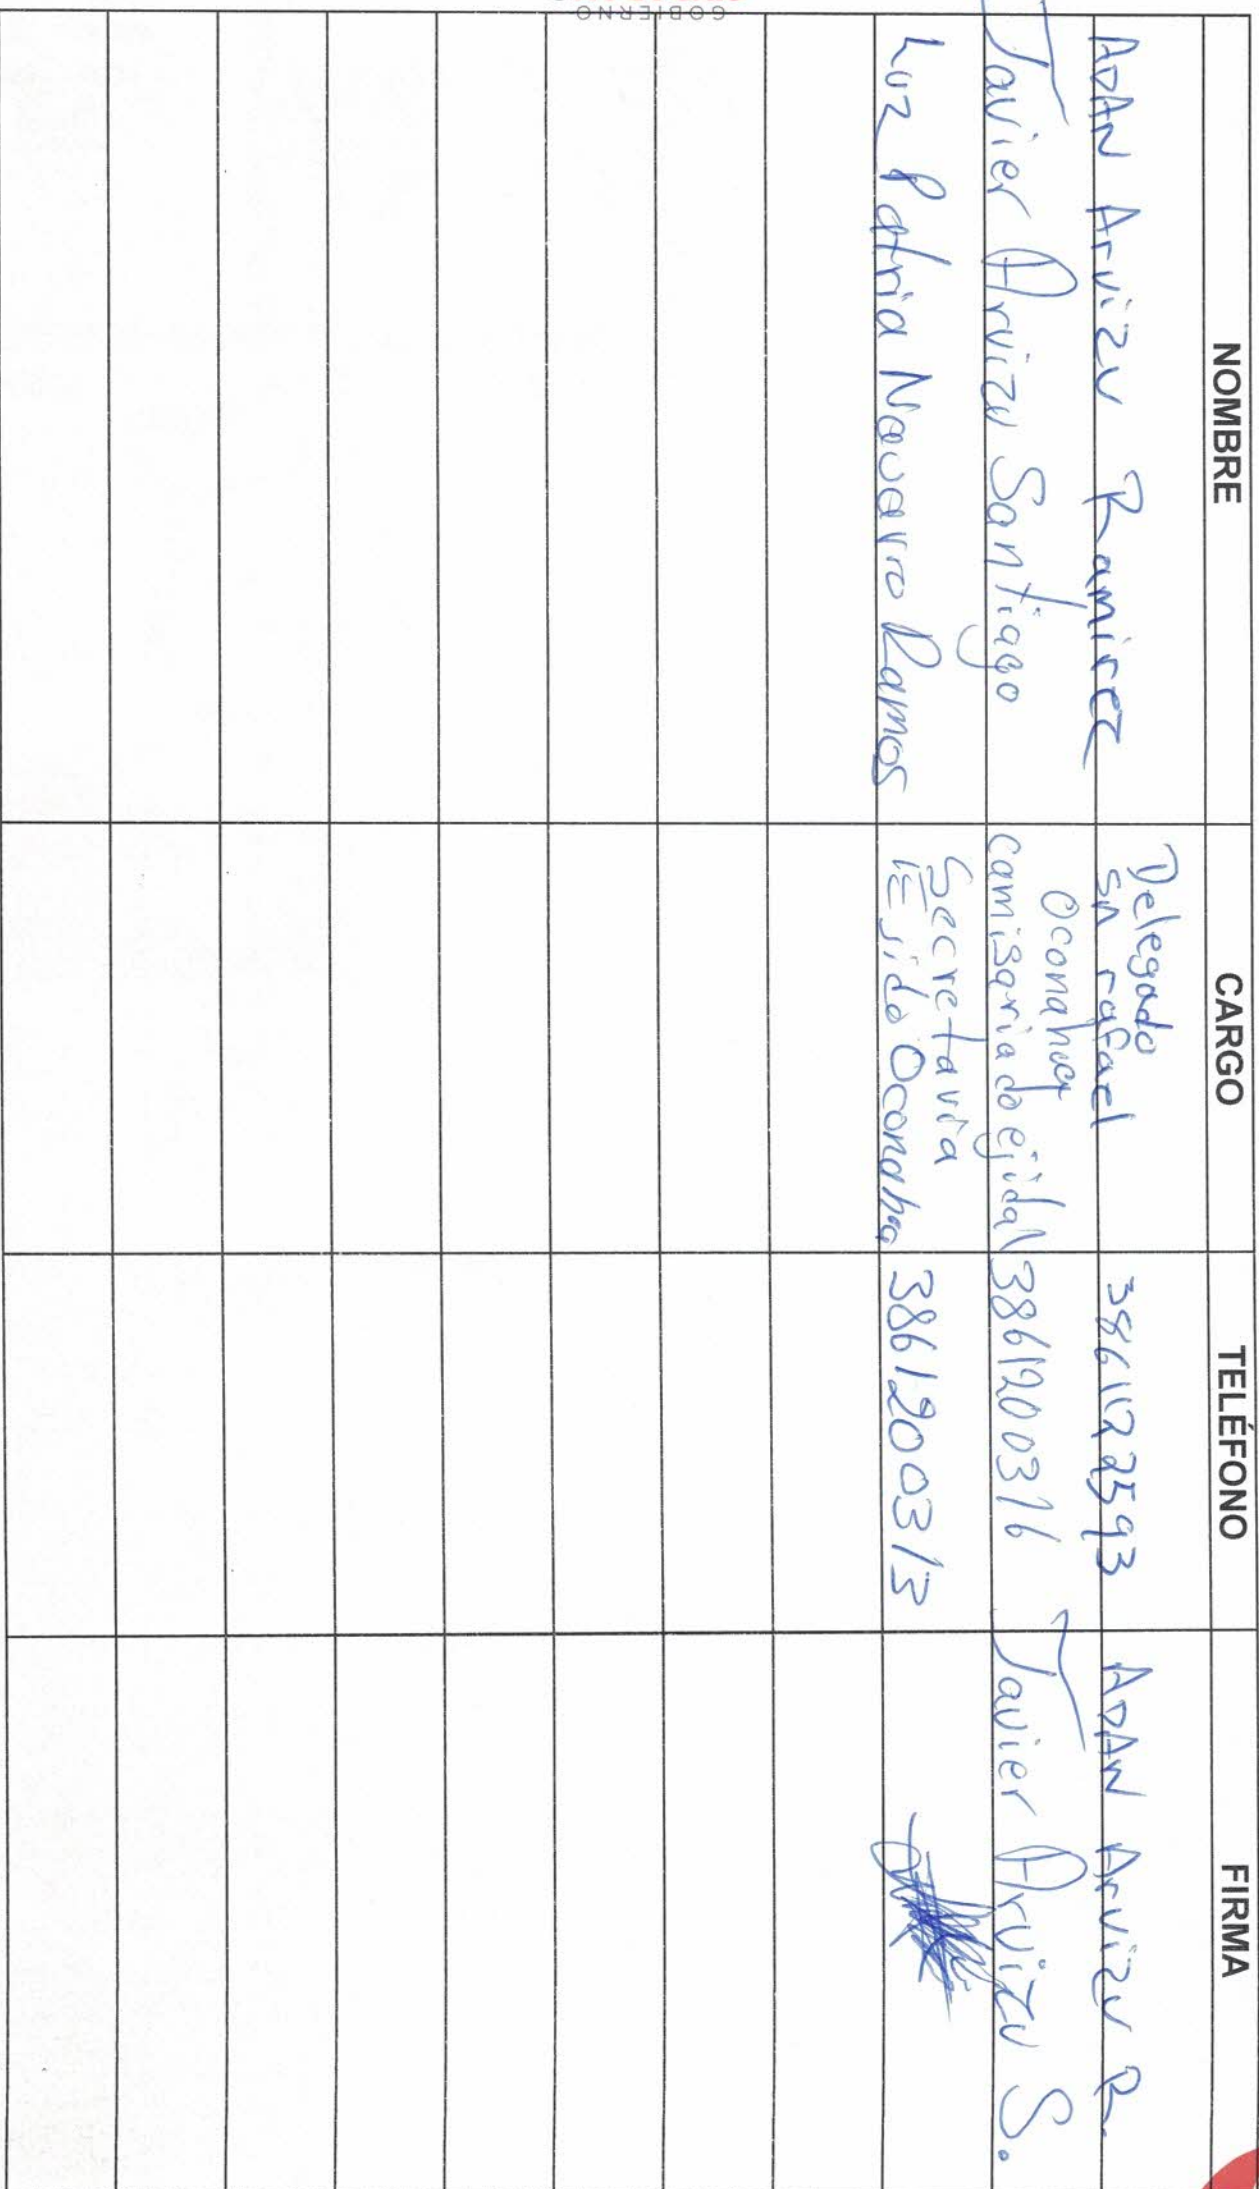 NOMBRE CARGO TELÉFONO FIRMA
ADAN Arvizu Ramirez Delegado sn rafael 3861122593 ADAN Arvizu R.
Javier Arvizu Santiago Oconahua comisariado ejidal 3861200316 Javier Arvizu S.
Luz Patria Navarro Ramos Secretaria Ejido Oconahua 3861200313
GOBIERNO